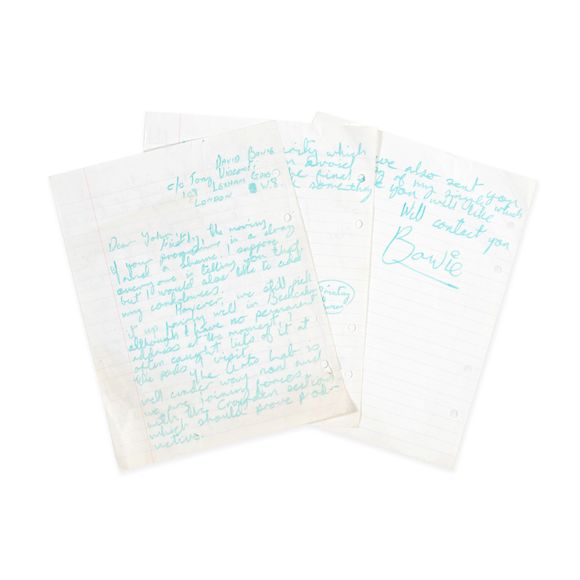 DAVID BOWIE
c/o TONY VISCONTI
109 LEXHAM GDNS.
LONDON W.8.
Dear John,
Firstly, the moving
of your programme is a drag
and a shame. I suppose
everyone is telling you that,
but I would also like to add
my condolences.
However, we still pick
it up fairly well in Beckenham
although I have no permanent
address at the moment, I
often caught bits of it at
the pads I visit.
The Arts Lab is
well under way now and
we are joining forces
with the Croydon
which should prove prod-
uctive.
which
something
also sent you
of my single which
you will like
Will contact you
Bowie